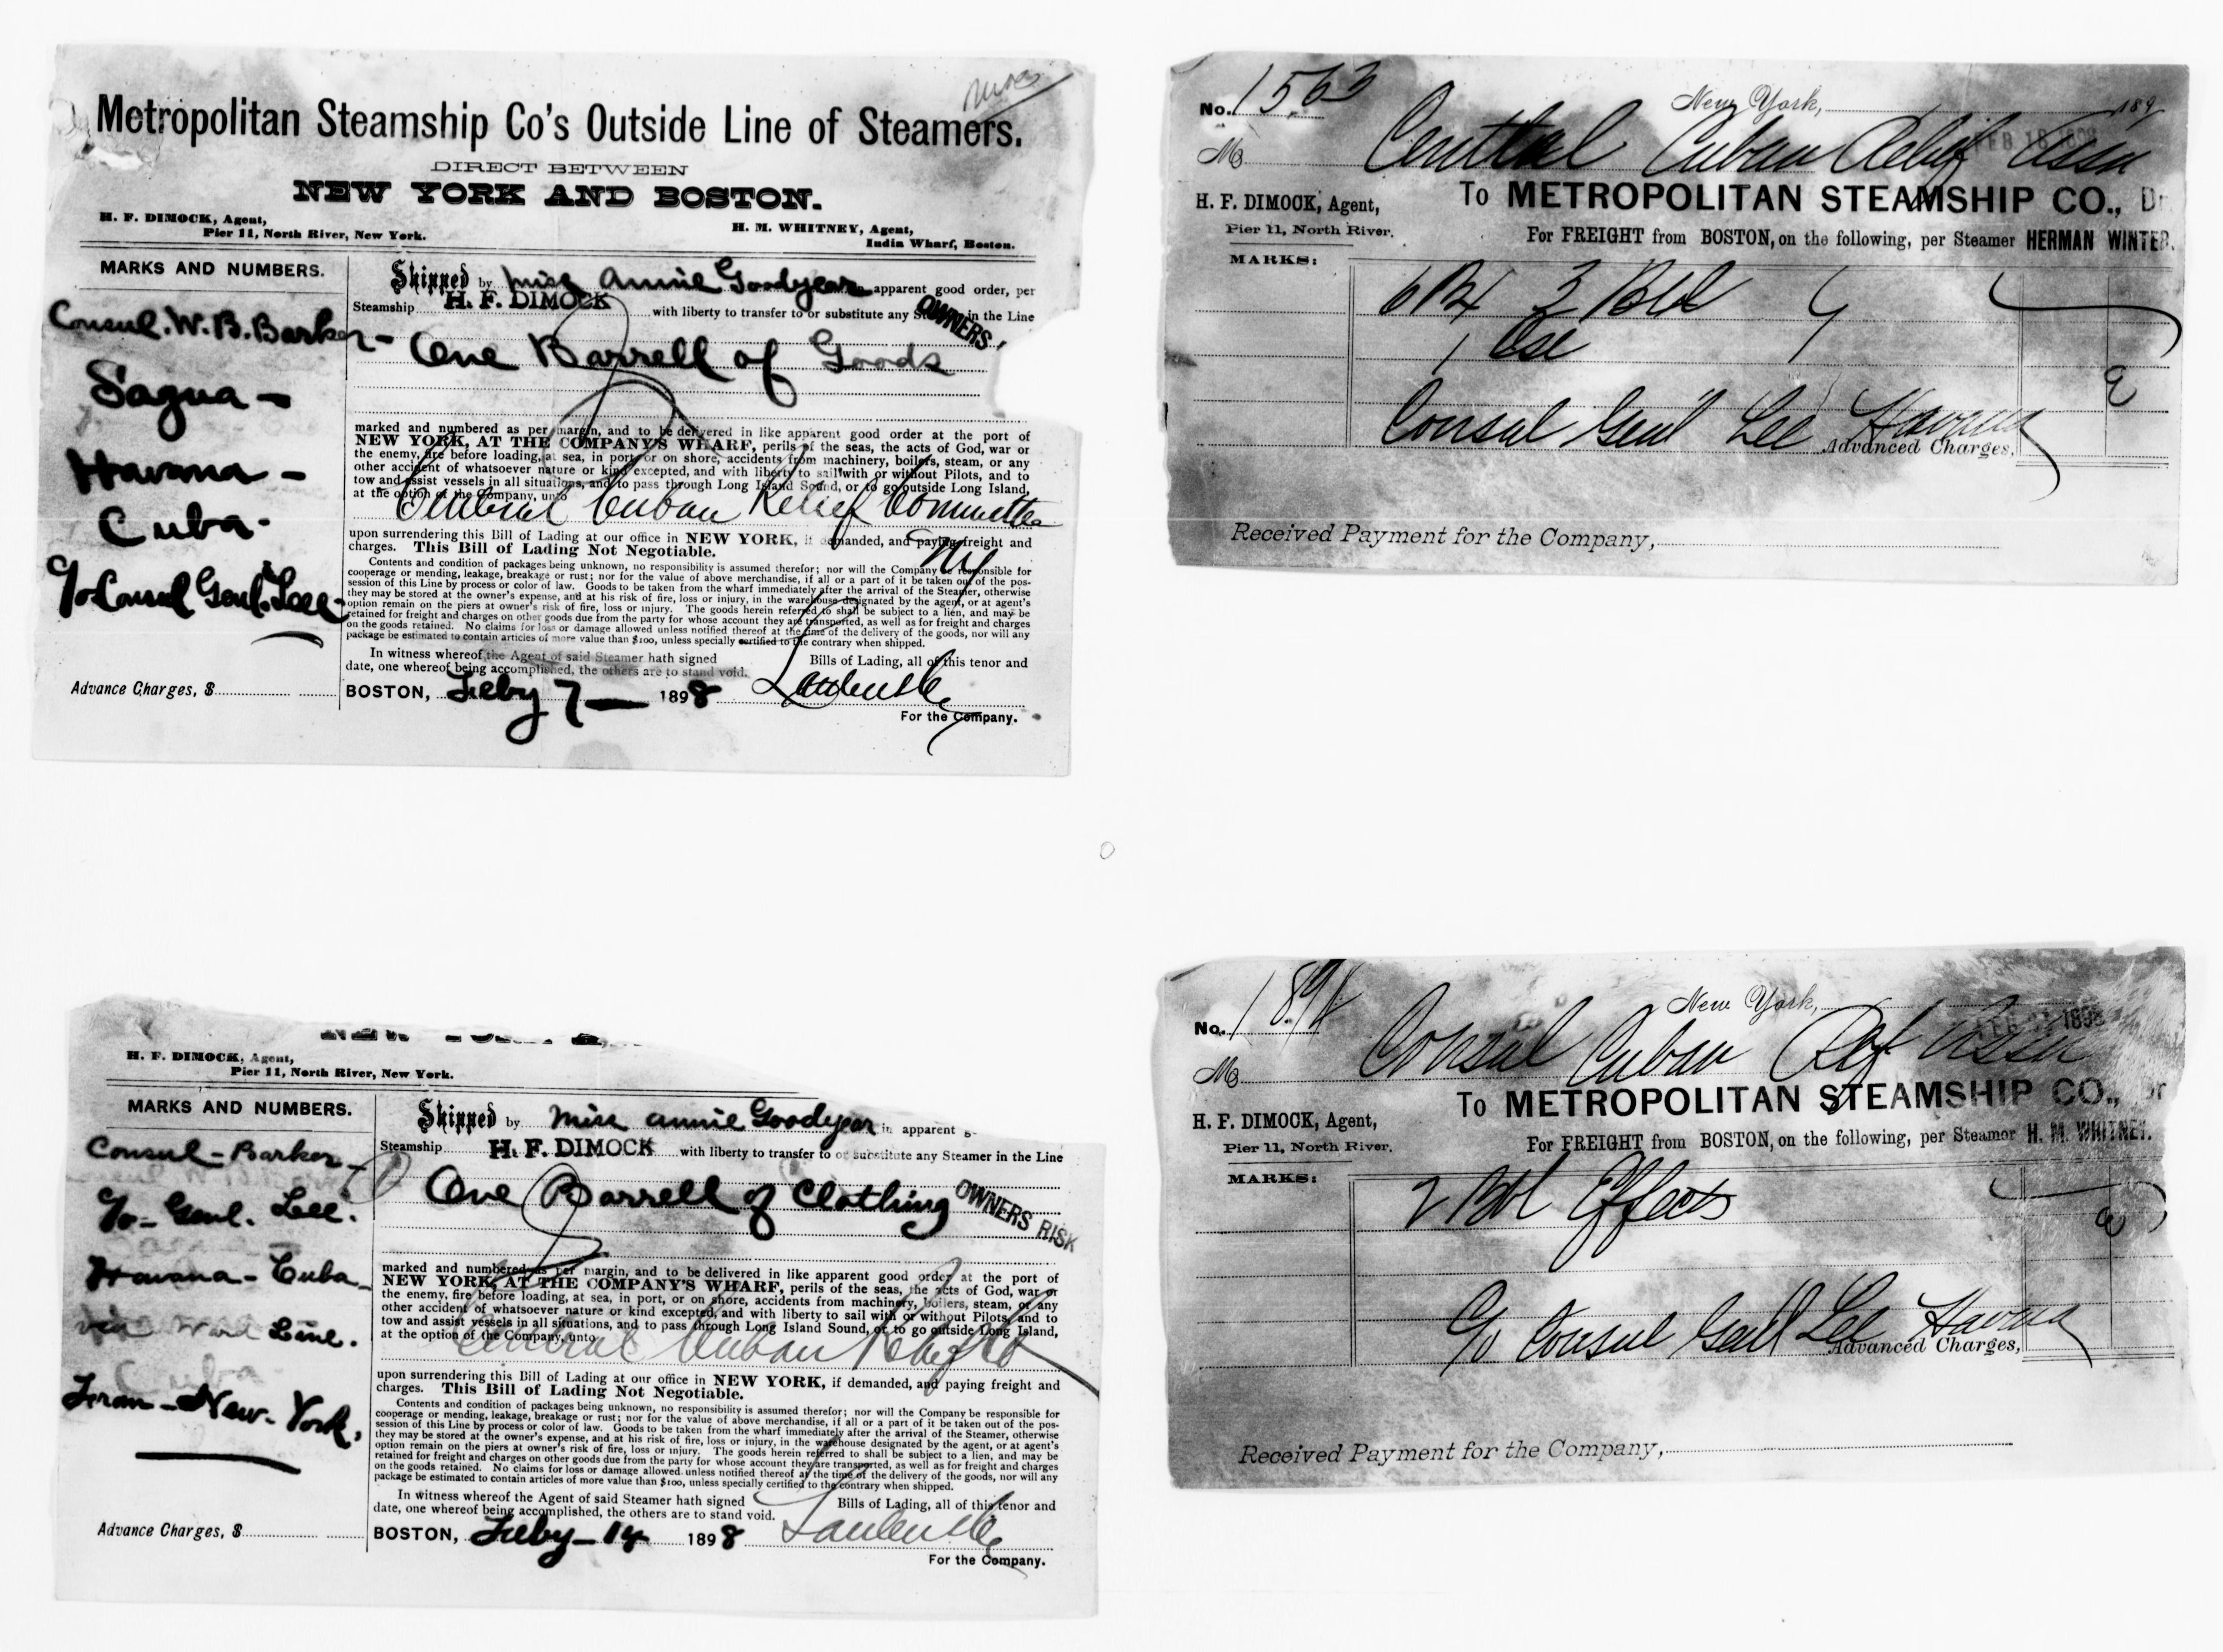 Metropolitan Steamship Co's Outside Line of Steamers.
DIRECT BETWEEN
NEW YORK AND BOSTON.
H. F. DIMOCK, Agent,
Pier 11, North River, New York.
H. M. WHITNEY, Agent,
India Wharf, Boston.
MARKS AND NUMBERS.
Consul. W. B. Barker-
Sagua-
Havana-
Cuba-
c/o Consul Genl. Lee-
Advance Charges, $
Shipped by Miss Annie Goodyear apparent good order, per
Steamship H. F. DIMOCK with liberty to transfer to or substitute any in the Line
OWNERS
One Barrell of Goods
marked and numbered as per margin, and to be delivered in like apparent good order at the port of
NEW YORK, AT THE COMPANY'S WHARF, perils of the seas, the acts of God, war or
the enemy, fire before loading, at sea, in port, or on shore, accidents from machinery, boilers, steam, or any
other accident of whatsoever nature or kind excepted, and with liberty to sail with or without Pilots, and to
tow and assist vessels in all situations, and to pass through Long Island Sound, or to go outside Long Island,
at the option of the Company, unto
Central Cuban Relief Committee
NY
upon surrendering this Bill of Lading at our office in NEW YORK, if demanded, and paying freight and
charges. This Bill of Lading Not Negotiable.
Contents and condition of packages being unknown, no responsibility is assumed therefor; nor will the Company be responsible for
cooperage or mending, leakage, breakage or rust; nor for the value of above merchandise, if all or a part of it be taken out of the pos-
session of this Line by process or color of law. Goods to be taken from the wharf immediately after the arrival of the Steamer, otherwise
they may be stored at the owner's expense, and at his risk of fire, loss or injury, in the warehouse designated by the agent, or at agent's
option remain on the piers at owner's risk of fire, loss or injury. The goods herein referred to shall be subject to a lien, and may be
retained for freight and charges on other goods due from the party for whose account they are transported, as well as for freight and charges
on the goods retained. No claims for loss or damage allowed unless notified thereof at the time of the delivery of the goods, nor will any
package be estimated to contain articles of more value than $100, unless specially certified to the contrary when shipped.
In witness whereof the Agent of said Steamer hath signed Bills of Lading, all of this tenor and
date, one whereof being accomplished, the others are to stand void.
BOSTON, Feby 7 1898
For the Company.
No. 1563
New York, 189
FEB 1898
M Central Cuban Relief Assn
To METROPOLITAN STEAMSHIP CO., Dr.
H. F. DIMOCK, Agent,
Pier 11, North River.
For FREIGHT from BOSTON, on the following, per Steamer HERMAN WINTER.
MARKS:
6 Bx 3 Bbl
1 Cse
Consul Genl Lee Havana
Advanced Charges,
Received Payment for the Company,
H. F. DIMOCK, Agent,
Pier 11, North River, New York.
MARKS AND NUMBERS.
Consul-Barker-
c/o-Genl. Lee.
Havana-Cuba-
via Ward Line.
Cuba
From-New-York.
Advance Charges, $
Shipped by Miss Annie Goodyear in apparent g
Steamship H. F. DIMOCK with liberty to transfer to or substitute any Steamer in the Line
One Barrell of Clothing
OWNERS RISK
marked and numbered as per margin, and to be delivered in like apparent good order at the port of
NEW YORK, AT THE COMPANY'S WHARF, perils of the seas, the acts of God, war or
the enemy, fire before loading, at sea, in port, or on shore, accidents from machinery, boilers, steam, or any
other accident of whatsoever nature or kind excepted, and with liberty to sail with or without Pilots, and to
tow and assist vessels in all situations, and to pass through Long Island Sound, or to go outside Long Island,
at the option of the Company, unto
Central Cuban Relief
upon surrendering this Bill of Lading at our office in NEW YORK, if demanded, and paying freight and
charges. This Bill of Lading Not Negotiable.
Contents and condition of packages being unknown, no responsibility is assumed therefor; nor will the Company be responsible for
cooperage or mending, leakage, breakage or rust; nor for the value of above merchandise, if all or a part of it be taken out of the pos-
session of this Line by process or color of law. Goods to be taken from the wharf immediately after the arrival of the Steamer, otherwise
they may be stored at the owner's expense, and at his risk of fire, loss or injury, in the warehouse designated by the agent, or at agent's
option remain on the piers at owner's risk of fire, loss or injury. The goods herein referred to shall be subject to a lien, and may be
retained for freight and charges on other goods due from the party for whose account they are transported, as well as for freight and charges
on the goods retained. No claims for loss or damage allowed unless notified thereof at the time of the delivery of the goods, nor will any
package be estimated to contain articles of more value than $100, unless specially certified to the contrary when shipped.
In witness whereof the Agent of said Steamer hath signed Bills of Lading, all of this tenor and
date, one whereof being accomplished, the others are to stand void.
BOSTON, Feby-14 1898
For the Company.
No. 1898
New York,
1898
M Consul Cuban Relf Assn
To METROPOLITAN STEAMSHIP CO., Dr
H. F. DIMOCK, Agent,
Pier 11, North River.
For FREIGHT from BOSTON, on the following, per Steamer H. M. WHITNEY.
MARKS:
2 Bbl Effects
c/o Consul Genl Lee Havana
Advanced Charges,
Received Payment for the Company,